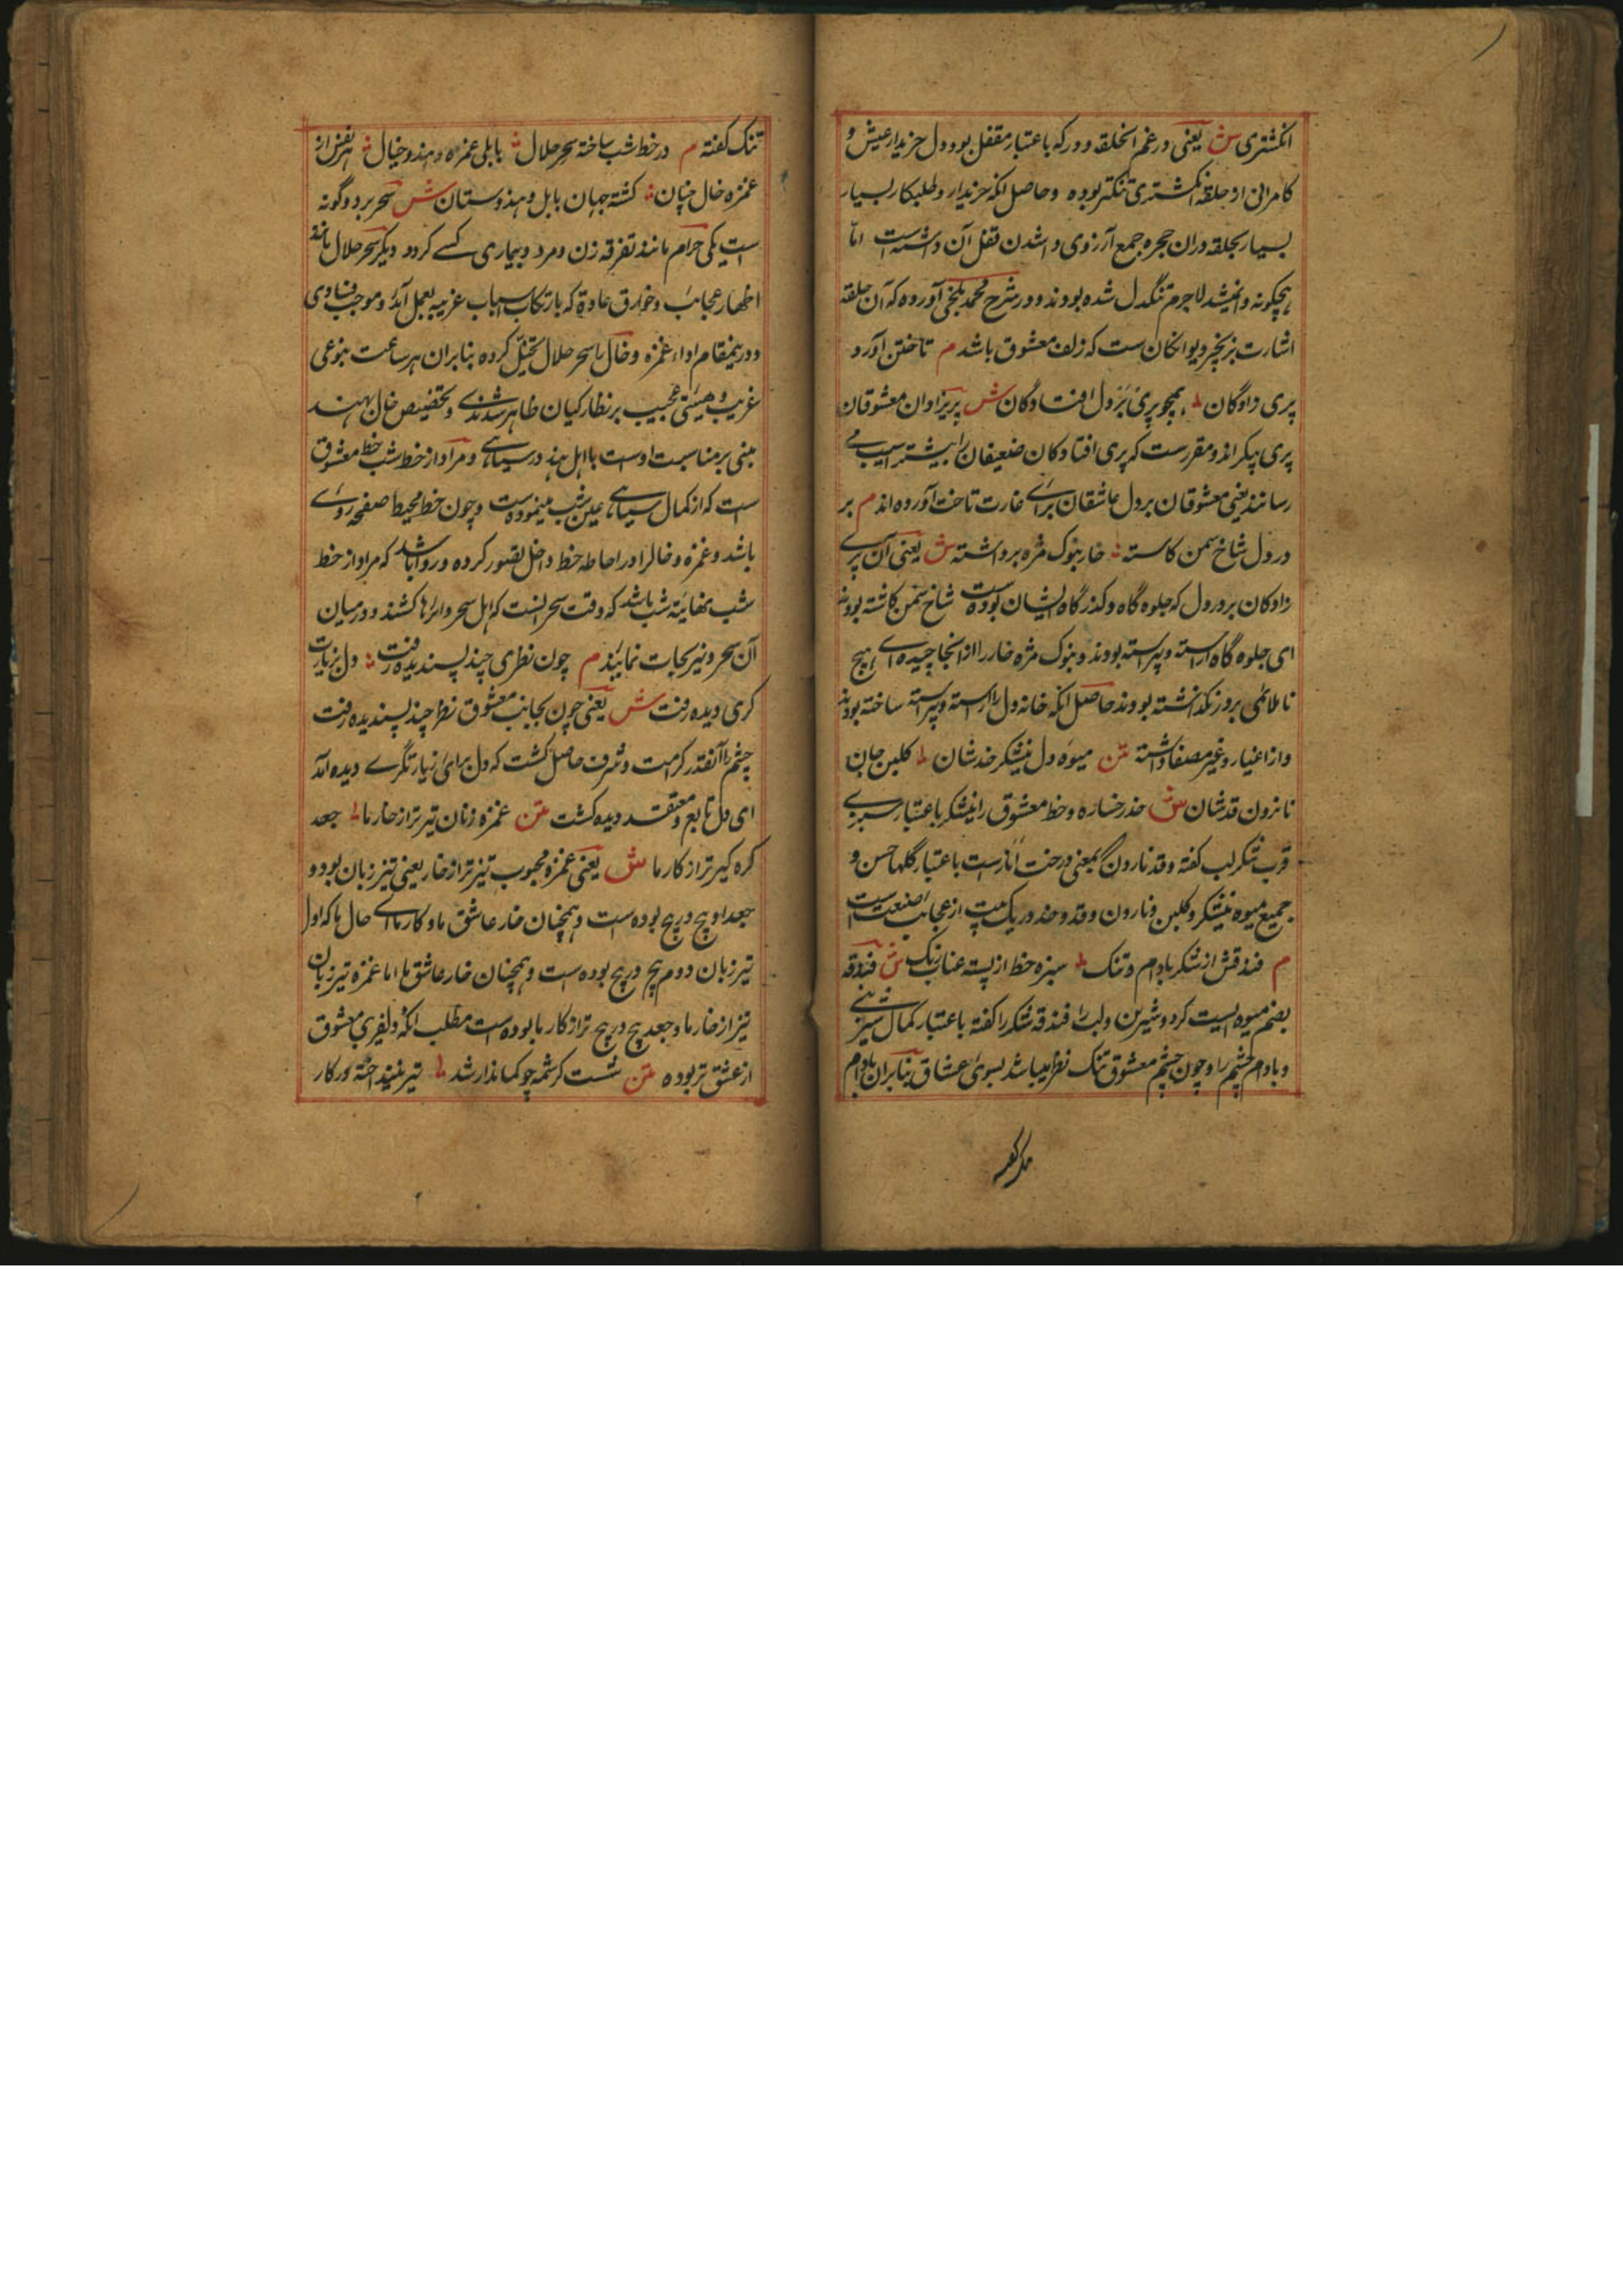 انکشتری ش یعنی در غم انحلقه و در که باعتبار مقفل بود دل خریدار عیش و
کامرانی از حلقه انکشتری تنکتر بوده و حاصل انکه خریدار و طلبکار بسیار
بسیار بحلقه دران حجره جمع آرزوی واشدن قفل آن داشته است اما
هیچکونه وانمیشد لاجرم تنکدل شده بودند و در شرح محمد بلخی آورده که آن حلقه
اشارت بزنجیر دیوانکان ست که زلف معشوق باشد م تاختن آورد
پری زادکان همچو پری بر دل افتادکان ش پریزادان معشوقان
پری پیکر اند و مقررست که پری افتادکان ضعیفان را بیشتر آسیب می
رسانند یعنی معشوقان بر دل عاشقان برای غارت تاخت آورده اند م بر
در دل شاخ سمن کاشته خار بنوک مژه برداشته ش یعنی آن پری
زادکان بر در دل که جلوه کاه و کذرکاه ایشان بوده ست شاخ سمن کاشته بودند
ای جلوه کاه آراسته و پیراسته بودند و بنوک مژه خار را از انجا چیده ای هیچ
ناملائمی بر در نکذاشته بودند حاصل انکه خانه دل را آراسته و پیراسته ساخته بودند
و از اغیار و غیر مصفا داشته متن میوه دل نیشکر خدشان کلبن جان
نارون قدشان ش خد رخساره و خط معشوق را نیشکر باعتبار سبزی
قرب شکر لب کفته و قد نارون بمعنی درخت انارست باعتبار کلهاء حسن و
جمیع میوه نیشکر و کلبن و نارون و قد و خد در یک بیت از عجایب صنعت است
م فندقش از شکر بادام و تنک سبزه خط از پسته عناب رنک ش فندقه
بضم میوه ایست کرد و شیرین و لب را فندقه شکر را کفته باعتبار کمال شیرینی
و بادام چشم را و چون چشم معشوق تنک نظر میباشد بسوی عشاق بنابران بادام
تنک کفته م در خط شب ساخته سحر حلال بابلی غمزه و هندو خیال هر نفس از
غمزه خال چنان کشته جهان بابل و هندوستان ش سحر بر دو کونه
است یکی حرام مانند تفرقه زن و مرد و بیماری کسی کردد و دیکر سحر حلال مانند
اظهار عجایب و خوارق عادة که بارتکاب اسباب غریبه بعمل آید و موجب فساد ی
و در ینمقام اداء غمزه و خال را سحر حلال تخیل کرده بنابران هر ساعت بنوعی
غریب و هیئتی عجیب بر نظارکیان ظاهر شدندی و تخصیص خال بهند
مبنی بر مناسبت اوست با اهل هند در سیاهی و مراد از خط شب خط معشوق
ست که از کمال سیاهی عین شب مینموده ست و چون خط محیط صفحه روی
باشد و غمزه و خالرا در احاطه خط داخل تصور کرده و روا باشد که مراد از خط
شب نهایة شب باشد که وقت سحر انست که اهل سحر دائرها کشند و در میان
آن سحر و نیرنجات نمایند م چون نظری چند پسندیده رفت دل بزیارت
کری دیده رفت ش یعنی چون بجانب معشوق نظرا چند پسندیده رفت
چشم را آنقدر کرامت و شرف حاصل کشت که دل برای زیارتکری دیده آمد
ای دل تابع و معتقد دیده کشت متن غمزه زنان تیز تر از خار ما جعد
کره کیر تر از کار ما ش یعنی غمزه محبوب تیز تر از خار یعنی تیز زبان بود و
جعد او پیچ در پیچ بوده ست و همچنان خار عاشق ما و کار ما ای حال ما که اول
تیز زبان دوم پیچ در پیچ بوده ست و همچنان خار عاشق ما اما غمزه تیز زبان
تیز از خار ما و جعد پیچ در پیچ تر از کار ما بوده است مطلب انکه دلفریبی معشوق
از عشق تر بوده متن شست کرشمه چو کماندار شد تیر نینداخته در کار